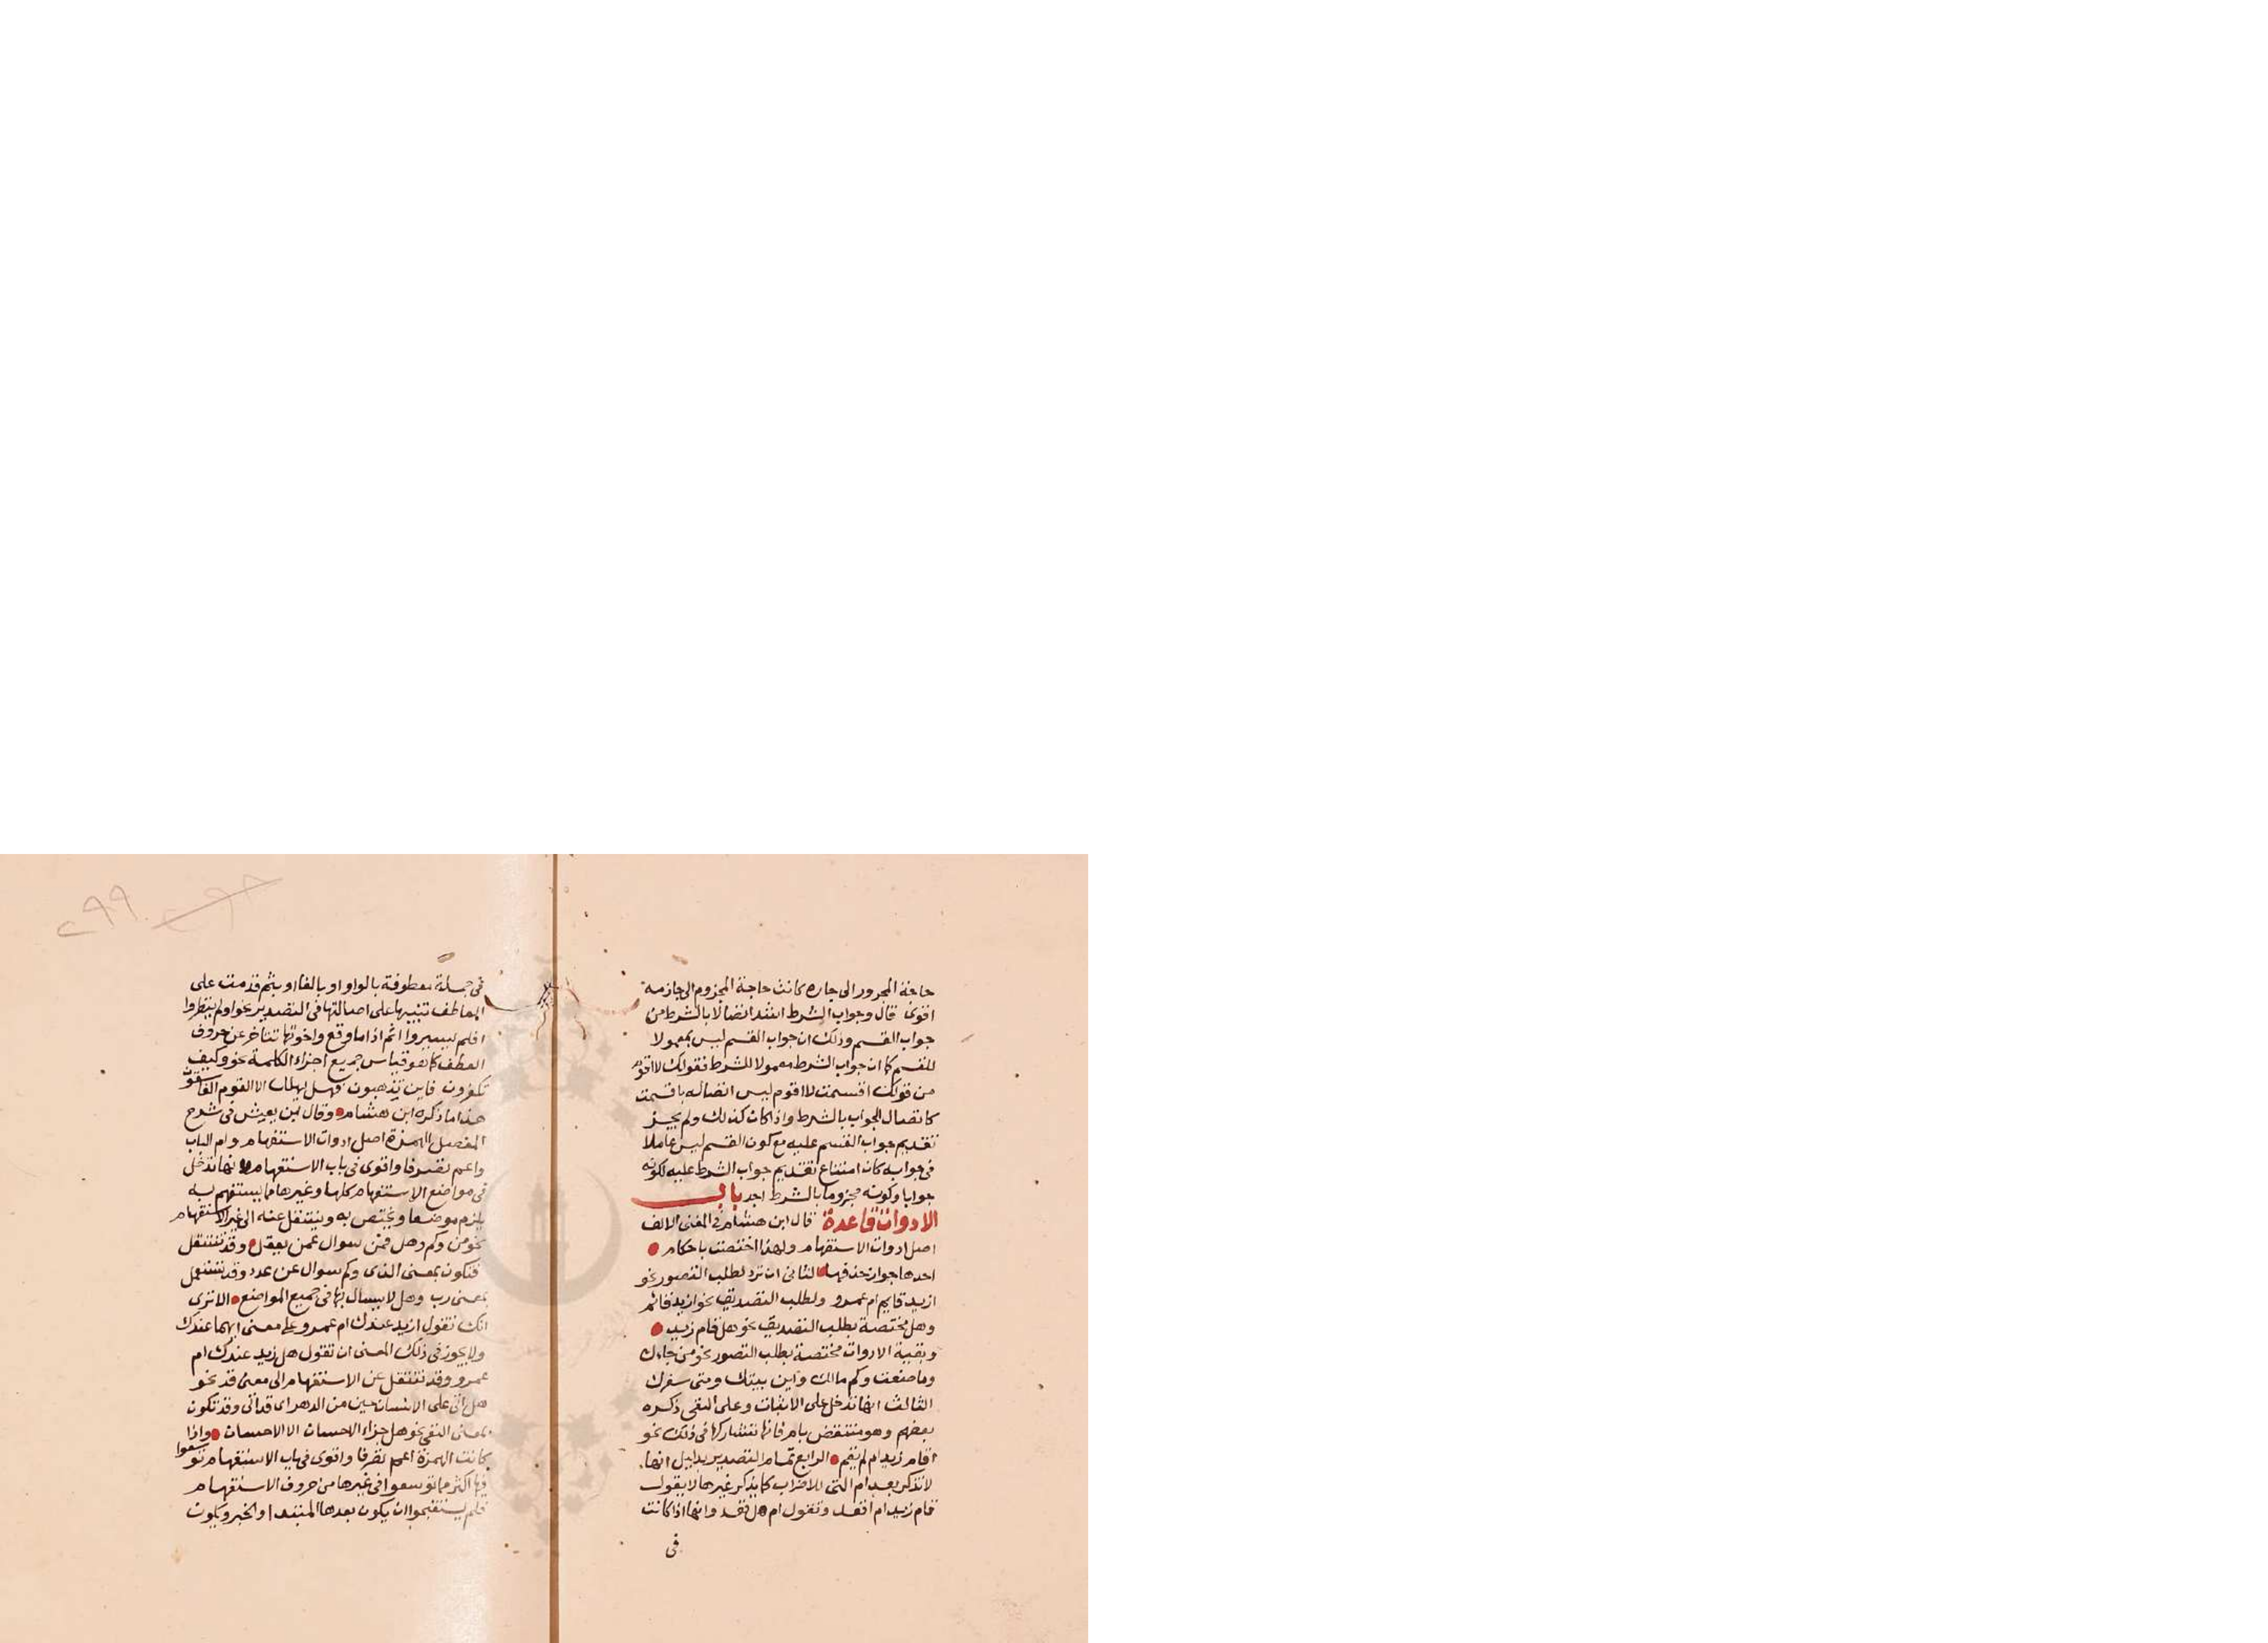 حاجة المجرور الى جاره كانت حاجة المجزوم الى جازمه
اقوى قال وجواب الشرط اشد اتصالا بالشرط من
جواب القسم وذلك ان جواب القسم ليس بمعمولا
للقسم كما ان جواب الشرط معمولا للشرط فقولك لا اقوم
من قولك اقسمت لا اقوم ليس اتصاله باقسمت
كاتصال الجواب بالشرط واذا كان كذلك ولم يجز
تقديم جواب القسم عليه مع كون القسم ليس عاملا
فى جوابه كان امتناع تقديم جواب الشرط عليه لكونه
جوابا وكونه مجزوما بالشرط اجد باب
الادوات قاعدة قال ابن هشام فى المغنى الالف
اصل ادوات الاستفهام ولهذا اختصت باحكام
احدها جواز حذفها الثانى ان ترد لطلب التصور نحو
ازيد قايم ام عمرو ولطلب التصديق نحو ازيد قائم
وهل مختصة بطلب التصديق نحو هل قام زيد
وبقية الادوات مختصة بطلب التصور نحو من جاءك
وما صنعت وكم مالك واين بيتك ومتى سفرك
الثالث انها تدخل على الاثبات وعلى النفى ذكره
بعضهم وهو منتقض بام فانها تشاركها فى ذلك نحو
اقام زيد ام لم يقم الرابع تمام التصدير بدليل انها
لا تذكر بعد ام التى للاضراب كما يذكر غيرها لا يقول
قام زيد ام اقعد وتقول ام هل قعد وانها اذا كانت
فى
٢٩٩
فى جملة معطوفة بالواو او بالفا او بثم قدمت على
العاطف تنبيها على اصالتها فى التصدير نحو اولم ينظروا
افلم يسيروا اثم اذا ما وقع واخوتها تتاخر عن حروف
العطف كما هو قياس جميع اجزاء الكلمة نحو وكيف
تكفرون فاين تذهبون فهل يهلك الا القوم الفاسقون
هذا ما ذكره ابن هشام وقال ابن يعيش فى شرح
المفصل الهمزة اصل ادوات الاستفهام وام الباب
واعم تصرفا واقوى فى باب الاستفهام لانها تدخل
فى مواضع الاستفهام كلها وغيرها مما يستفهم به
يلزم موضعا ويختص به وينتقل عنه الى غير الاستفهام
نحو من وكم وهل فمن سوال عمن يعقل وقد تنتقل
فتكون بمعنى الذى وكم سوال عن عدد وقد تستعمل
بمعنى رب وهل لا يسال بها فى جميع المواضع الا ترى
انك تقول ازيد عندك ام عمرو على معنى ايهما عندك
ولا يجوز فى ذلك المعنى ان تقول هل زيد عندك ام
عمرو وقد تنتقل عن الاستفهام الى معنى قد نحو
هل اتى على الانسان حين من الدهر اى قد اتى وقد تكون
بمعنى النفى نحو هل جزاء الاحسان الا الاحسان واذا
كانت الهمزة اعم تصرفا واقوى فى باب الاستفهام توسعوا
فيها اكثر مما توسعوا فى غيرها من حروف الاستفهام
فلم يستقبحوا ان يكون بعدها المبتدا والخبر ويكون